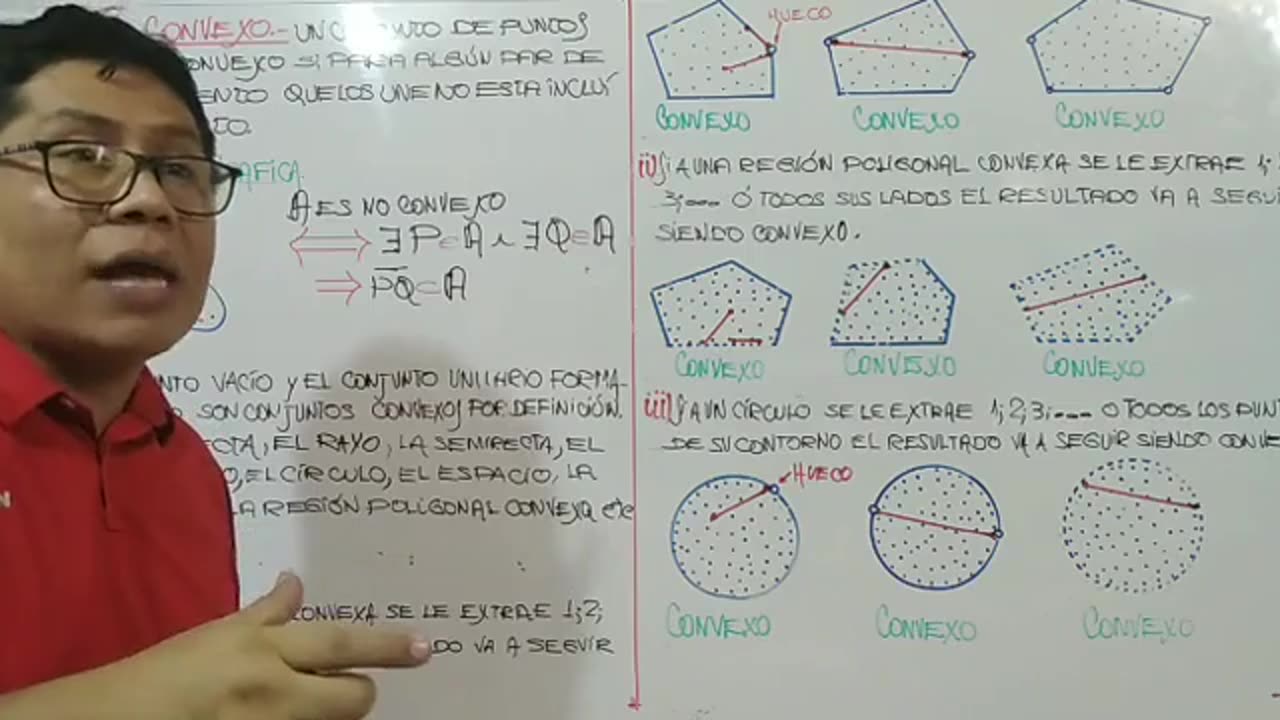 CONVEXO.- UN C NTO DE PUNTOS
ONVEXO SI PARA ALGÚN PAR DE
ENTO QUE LOS UNE NO ESTA INCLUÍ
TO.
AFICA
A ES NO CONVEXO
⟺ ∃ P ∈ A ∧ ∃ Q ∈ A
⟹ PQ ⊂ A
NTO VACÍO Y EL CONJUNTO UNITARIO FORMA-
SON CONJUNTOS CONVEXOS POR DEFINICIÓN.
CTA, EL RAYO, LA SEMIRECTA, EL
O, EL CÍRCULO, EL ESPACIO, LA
LA REGIÓN POLIGONAL CONVEXA etc
CONVEXA SE LE EXTRAE 1; 2;
DO VA A SEGUIR
HUECO
CONVEXO CONVEXO CONVEXO
ii) Si A UNA REGIÓN POLIGONAL CONVEXA SE LE EXTRAE 1;
3;... Ó TODOS SUS LADOS EL RESULTADO VA A SEGUI
SIENDO CONVEXO.
CONVEXO CONVEXO CONVEXO
iii) Si A UN CÍRCULO SE LE EXTRAE 1; 2; 3;... O TODOS LOS PUNT
DE SU CONTORNO EL RESULTADO VA A SEGUIR SIENDO CONVE
HUECO
CONVEXO CONVEXO CONVEXO